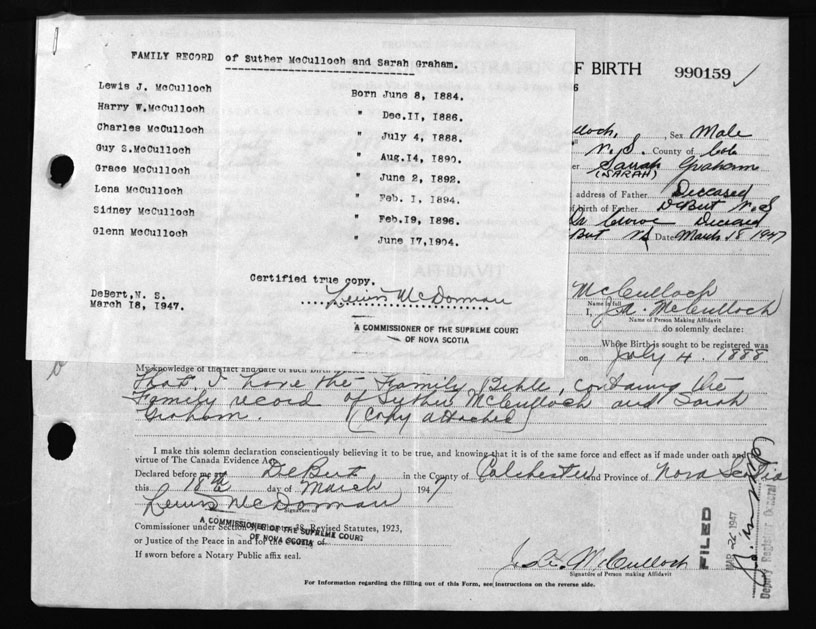 FAMILY RECORD of Suther McCulloch and Sarah Graham.
Lewis J. McCulloch Born June 8, 1884.
Harry W.McCulloch " Dec.11, 1886.
Charles McCulloch " July 4, 1888.
Guy S.McCulloch " Aug.14, 1890.
Grace McCulloch " June 2, 1892.
Lena McCulloch " Feb. 1, 1894.
Sidney McCulloch " Feb.19, 1896.
Glenn McCulloch " June 17,1904.
Certified true copy.
DeBert,N. S.
March 18, 1947.
Lewis McDorman
A COMMISSIONER OF THE SUPREME COURT
OF NOVA SCOTIA
F BIRTH 990159
lloch, , Sex Male
N.S. County of Col
er Sarah Graham
(SARAH)
address of Father Deceased
of birth of Father DeBert N.S
Crowe Deceased
Bert NS Date March 18 1947
McCulloch
Name in full
I, McCulloch
Name of Person Making Affidavit
do solemnly declare:
Whose Birth is sought to be registered was
on July 4. 1888
My knowledge of the fact and date of such birth
That I have the Family Bible, containing the
Family record of Suther McCulloch and Sarah
Graham. (Copy attached)
I make this solemn declaration conscientiously believing it to be true, and knowing that it is of the same force and effect as if made under oath and
virtue of The Canada Evidence Act
Declared before me at DeBert in the County of Colchester and Province of Nova Scotia
this 18th day of March 1947
Lewis McDorman
Signature of
Commissioner under Section 38, Revised Statutes, 1923,
A COMMISSIONER OF THE SUPREME COURT
OF NOVA SCOTIA
or Justice of the Peace in and for the County of
If sworn before a Notary Public affix seal.
McCulloch
Signature of Person making Affidavit
FILED
MAR 1947
Deputy Registrar General
For information regarding the filling out of this Form, see instructions on the reverse side.